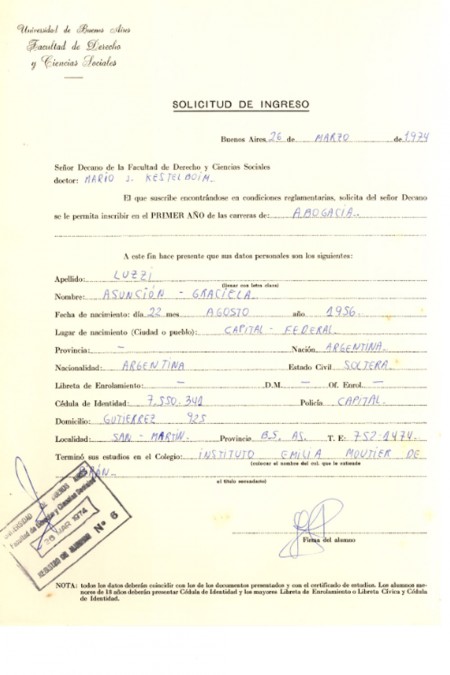 Universidad de Buenos Aires
Facultad de Derecho
y Ciencias Sociales
SOLICITUD DE INGRESO
Buenos Aires, 26 de MARZO de 1974
Señor Decano de la Facultad de Derecho y Ciencias Sociales
doctor: MARIO J. KESTELBOIM.
El que suscribe encontrándose en condiciones reglamentarias, solicita del señor Decano
se le permita inscribir en el PRIMER AÑO de las carreras de: ABOGACÍA
A este fin hace presente que sus datos personales son los siguientes:
Apellido: LUZZI
(llenar con letra clara)
Nombre: ASUNCIÓN - GRACIELA
Fecha de nacimiento: día 22 mes AGOSTO año 1956
Lugar de nacimiento (Ciudad o pueblo): CAPITAL - FEDERAL
Provincia: - Nación ARGENTINA
Nacionalidad: ARGENTINA Estado Civil SOLTERA
Libreta de Enrolamiento: - D.M. - Of. Enrol. -
Cédula de Identidad: 7.550.341 Policía CAPITAL
Domicilio: GUTIERREZ 925
Localidad: SAN - MARTIN Provincia BS. AS. T. E: 752-1474
Terminó sus estudios en el Colegio: INSTITUTO EMILIA MOUTIER DE
(colocar el nombre del col. que le extiende
el título secundario)
UNIVERSIDAD DE BUENOS AIRES
Facultad de Derecho y Ciencias Sociales
26 MAR 1974
Nº 6
Firma del alumno
NOTA: todos los datos deberán coincidir con los de los documentos presentados y con el certificado de estudios. Los alumnos me-
nores de 18 años deberán presentar Cédula de Identidad y los mayores Libreta de Enrolamiento o Libreta Cívica y Cédula
de Identidad.